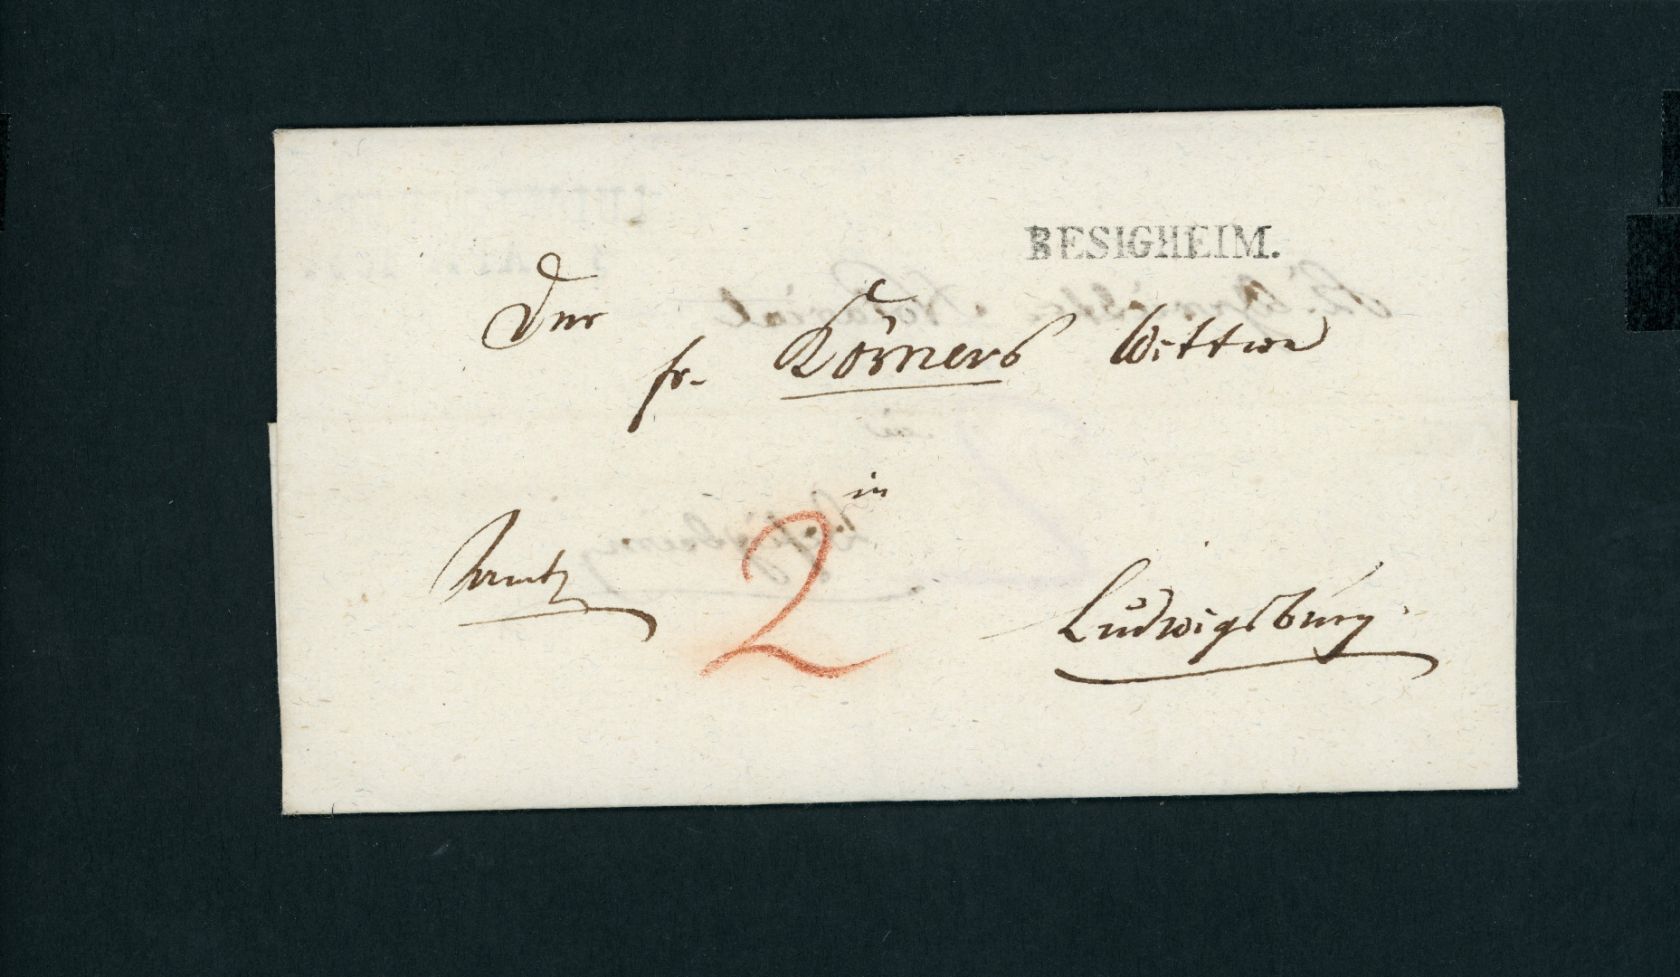 BESIGHEIM.
Der
fr. Körners Wittwe
in
2
Ludwigsburg.